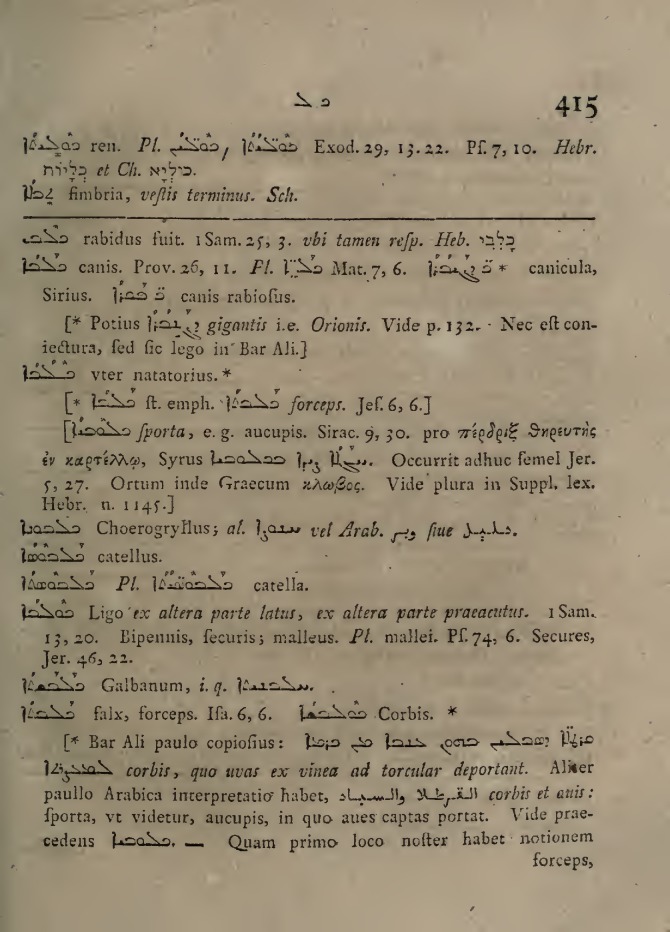 ܟ ܠ 415
ܟܘܠܝܬܐ ren. Pl. Exod. 29, 13. 22. Pſ. 7, 10. Hebr.
כְּלָיוֹת et Ch. כּוּלְיָא.
fimbria, veſtis terminus. Sch.
ܟܠܒ rabidus fuit. 1 Sam. 25, 3. vbi tamen reſp. Heb. כָּלְבִּי
ܟܠܒܐ canis. Prov. 26, 11. Pl. ܟܠܒܐ Mat. 7, 6. * canicula,
Sirius. canis rabioſus.
[* Potius ܕܓܢܒܪܐ gigantis i.e. Orionis. Vide p. 132. Nec eſt con-
iectura, ſed ſic lego in Bar Ali.]
ܟܠܒܐ vter natatorius. *
[* ſt. emph. ܟܠܒܬܐ forceps. Jeſ. 6, 6.]
[ܟܠܘܒܝܐ ſporta, e. g. aucupis. Sirac. 9, 30. pro πέρδριξ θηρευτὴς
ἐν καρτέλλῳ, Syrus Occurrit adhuc ſemel Jer.
5, 27. Ortum inde Graecum κλωβος. Vide plura in Suppl. lex.
Hebr. n. 1145.]
Choerogryllus; al. vel Arab. وبر ſiue
catellus.
Pl. catella.
ܟܘܠܒܐ Ligo ex altera parte latus, ex altera parte praeacutus. 1 Sam.
13, 20. Bipennis, ſecuris; malleus. Pl. mallei. Pſ. 74, 6. Secures,
Jer. 46, 22.
Galbanum, i. q.
ܟܠܒܬܐ falx, forceps. Iſa. 6, 6. Corbis. *
[* Bar Ali paulo copioſius:
corbis, quo uvas ex vinea ad torcular deportant. Aliter
paullo Arabica interpretatio habet, corbis et auis:
ſporta, vt videtur, aucupis, in quo aues captas portat. Vide prae-
cedens ܟܠܘܒܝܐ. — Quam primo loco noſter habet notionem
forceps,